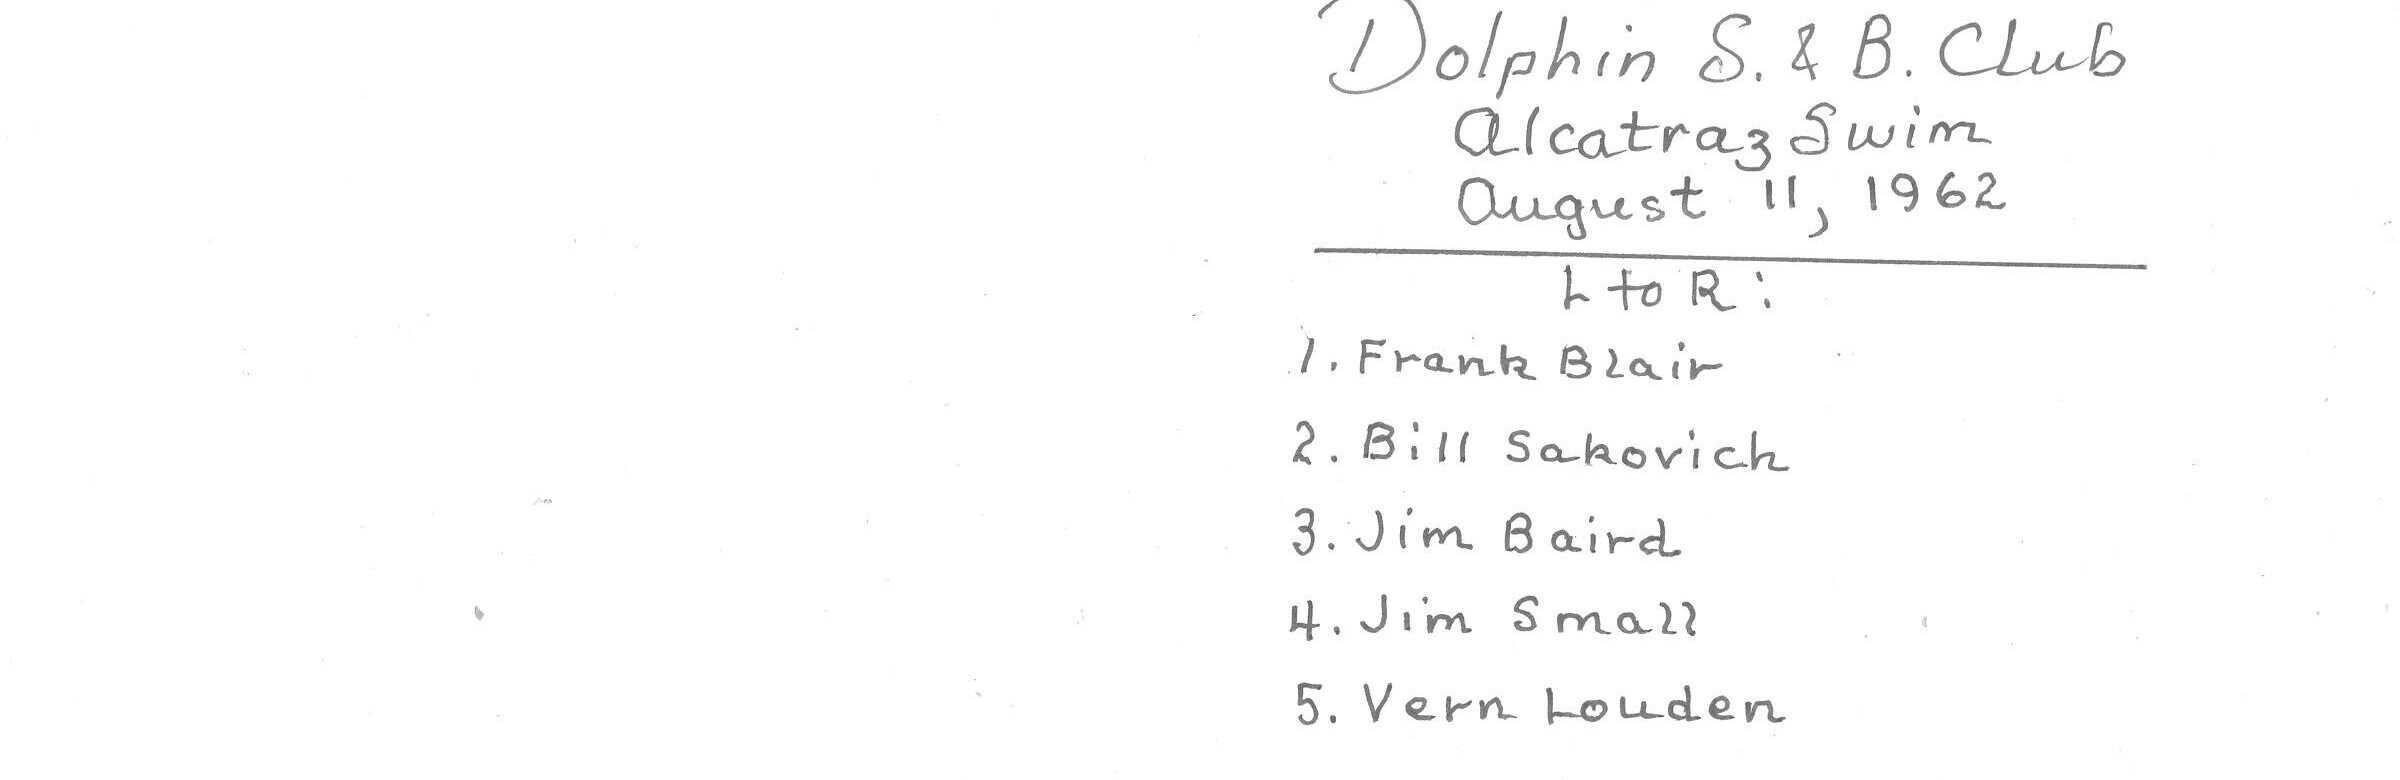 Dolphin S. & B. Club
Alcatraz Swim
August 11, 1962
L to R:
1. Frank Blair
2. Bill Sakovich
3. Jim Baird
4. Jim Small
5. Vern Louden